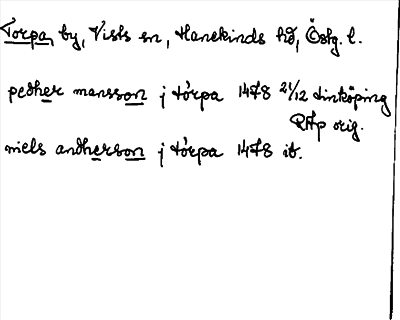 Torpa, by, Vists sn, Hanekinds hd, Östg. l.
pedher mansson j tórpa 1478 21/12 Linköping
RAp orig.
niels andherson j tórpa 1478 ib.